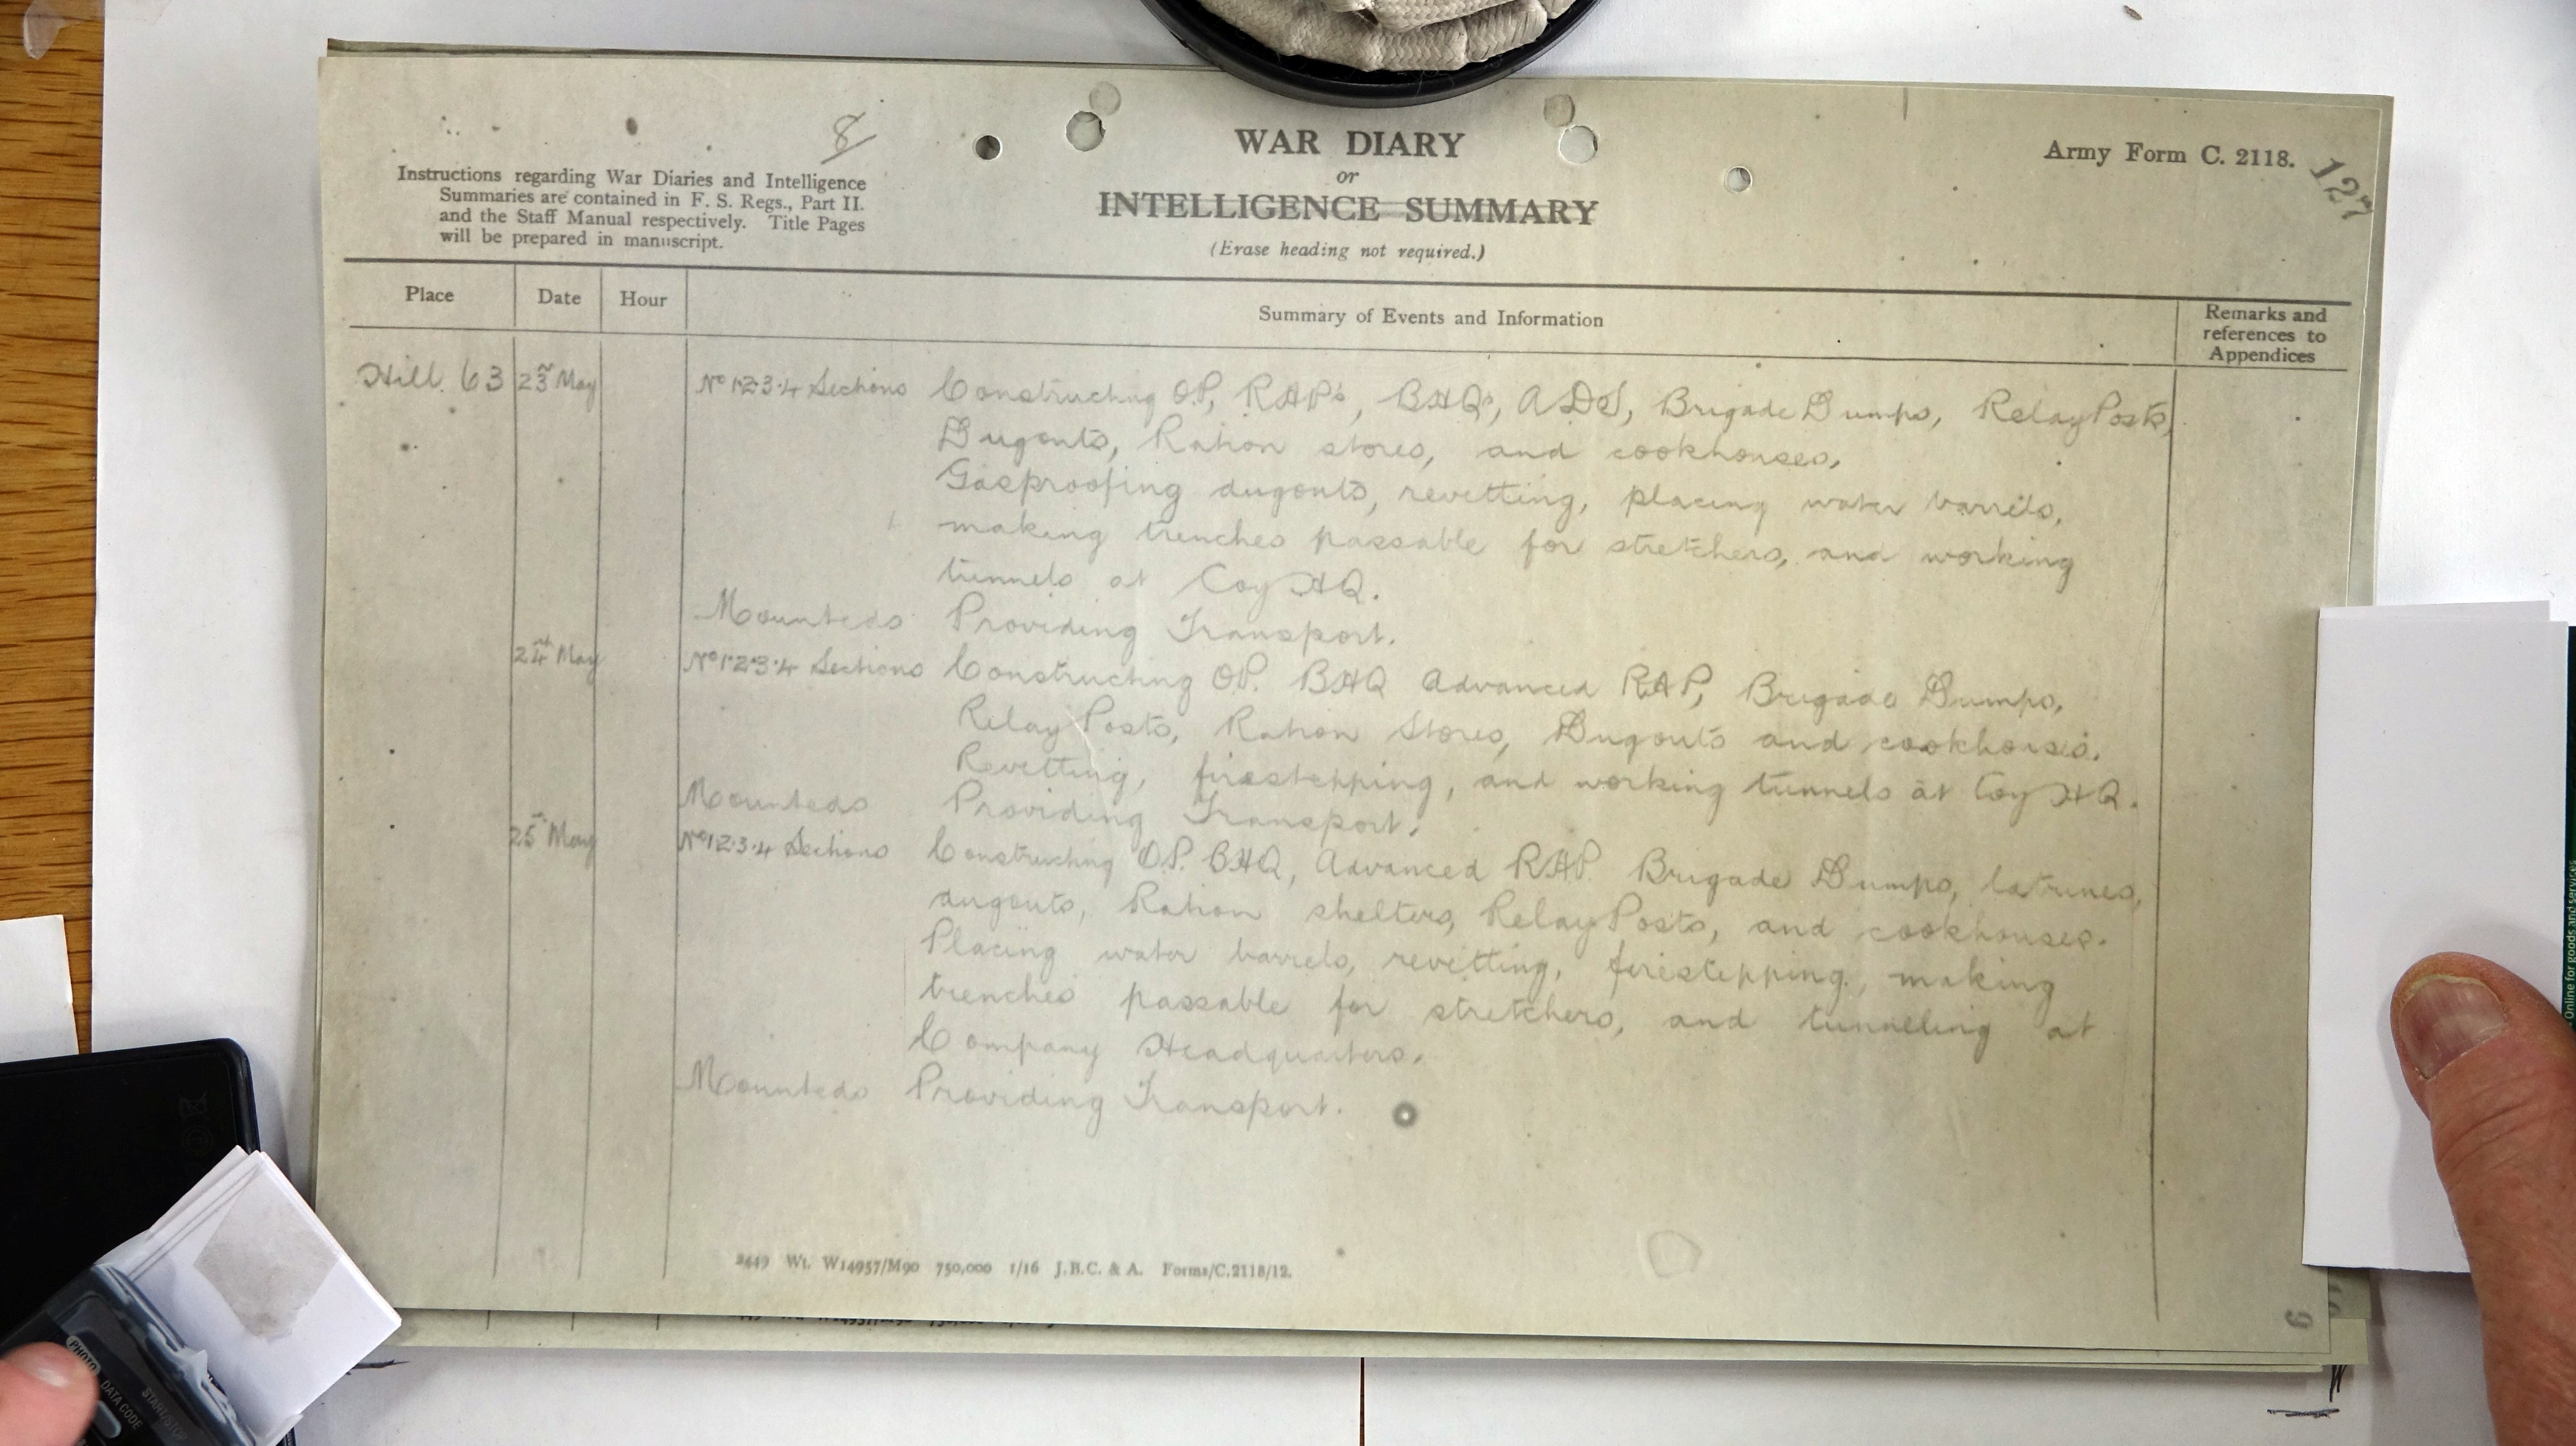 8
WAR DIARY
or
INTELLIGENCE SUMMARY
(Erase heading not required.)
Army Form C. 2118.
127
Instructions regarding War Diaries and Intelligence
Summaries are contained in F. S. Regs., Part II.
and the Staff Manual respectively. Title Pages
will be prepared in manuscript.
Place Date Hour Summary of Events and Information Remarks and
references to
Appendices
Hill 63 23rd May No 1.2.3.4 Sections Constructing O.P, RAP's, BHQs, ADS, Brigade Dumps, Relay Posts,
Dugouts, Ration stores, and cookhouses.
Gasproofing dugouts, revetting, placing water barrels,
making trenches passable for stretchers, and working
tunnels at Coy HQ.
Mounteds Providing Transport.
24th May No 1.2.3.4 Sections Constructing OP. BHQ Advanced RAP, Brigade Dumps,
Relay Posts, Ration Stores, Dugouts and cookhouses.
Revetting, firestepping, and working tunnels at Coy HQ.
Mounteds Providing Transport.
25th May No 1.2.3.4 Sections Constructing O.P. BHQ, Advanced RAP. Brigade Dumps, latrines,
dugouts, Ration shelters, Relay Posts, and cookhouses.
Placing water barrels, revetting, firestepping, making
trenches passable for stretchers, and tunnelling at
Company Headquarters.
Mounteds Providing Transport.
2449 Wt. W14957/M90 750,000 1/16 J.B.C. & A. Forms/C.2118/12.
PHOTO
DATA CODE
START/STOP
Online for goods and services